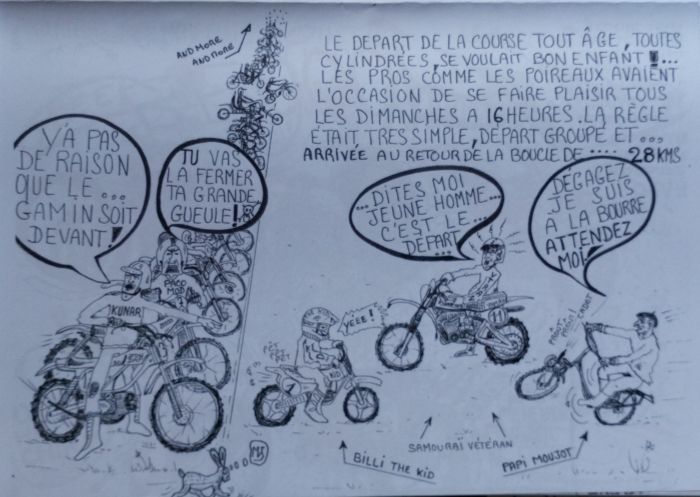 AND MORE
AND MORE
LE DEPART DE LA COURSE TOUT ÂGE, TOUTES
CYLINDRÉES, SE VOULAIT BON ENFANT !...
LES PROS COMME LES POIREAUX AVAIENT
L'OCCASION DE SE FAIRE PLAISIR TOUS
LES DIMANCHES A 16 HEURES. LA RÈGLE
ÉTAIT TRES SIMPLE, DÉPART GROUPÉ ET ...
ARRIVÉE AU RETOUR DE LA BOUCLE DE .... 28 KMS
Y'A PAS
DE RAISON
QUE LE ...
GAMIN SOIT
DEVANT !
TU VAS
LA FERMER
TA GRANDE
GUEULE !
... DITES MOI
JEUNE HOMME ...
C'EST LE ...
DEPART ...
DÉGAGEZ
JE SUIS
A LA BOURRE
ATTENDEZ
MOI !
PACO
MOB
KUNAR
YEEE !
PÊT
PÊT
11
BILLI THE KID
SAMOURAÏ VÉTÉRAN
PAPI MOUJOT